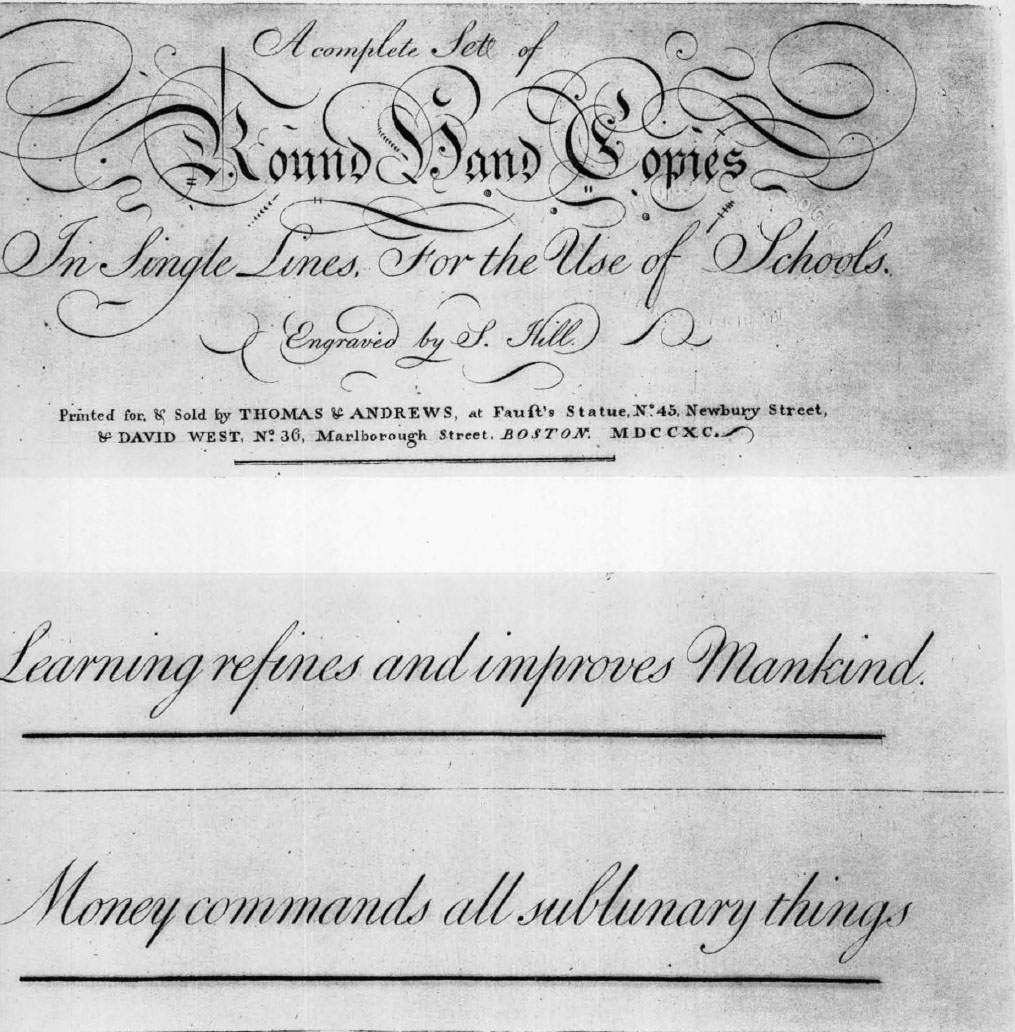 A complete Sett of
Round Hand Copies
In Single Lines, For the Use of Schools.
Engraved by S. Hill.
Printed for, & Sold by THOMAS & ANDREWS, at Fauſt's Statue, No. 45, Newbury Street,
& DAVID WEST, No. 36, Marlborough Street, BOSTON. MDCCXC.
Learning refines and improves Mankind.
Money commands all sublunary things